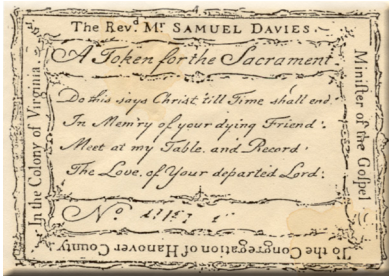 The Revd. Mr. SAMUEL DAVIES.
Minister of the Gospel
To the Congregation of Hanover County
In the Colony of Virginia
A Token for the Sacrament
Do this says Christ 'till Time shall end.
In Mem'ry of your dying Friend.
Meet at my Table, and Record
The Love, of Your departed Lord:
No